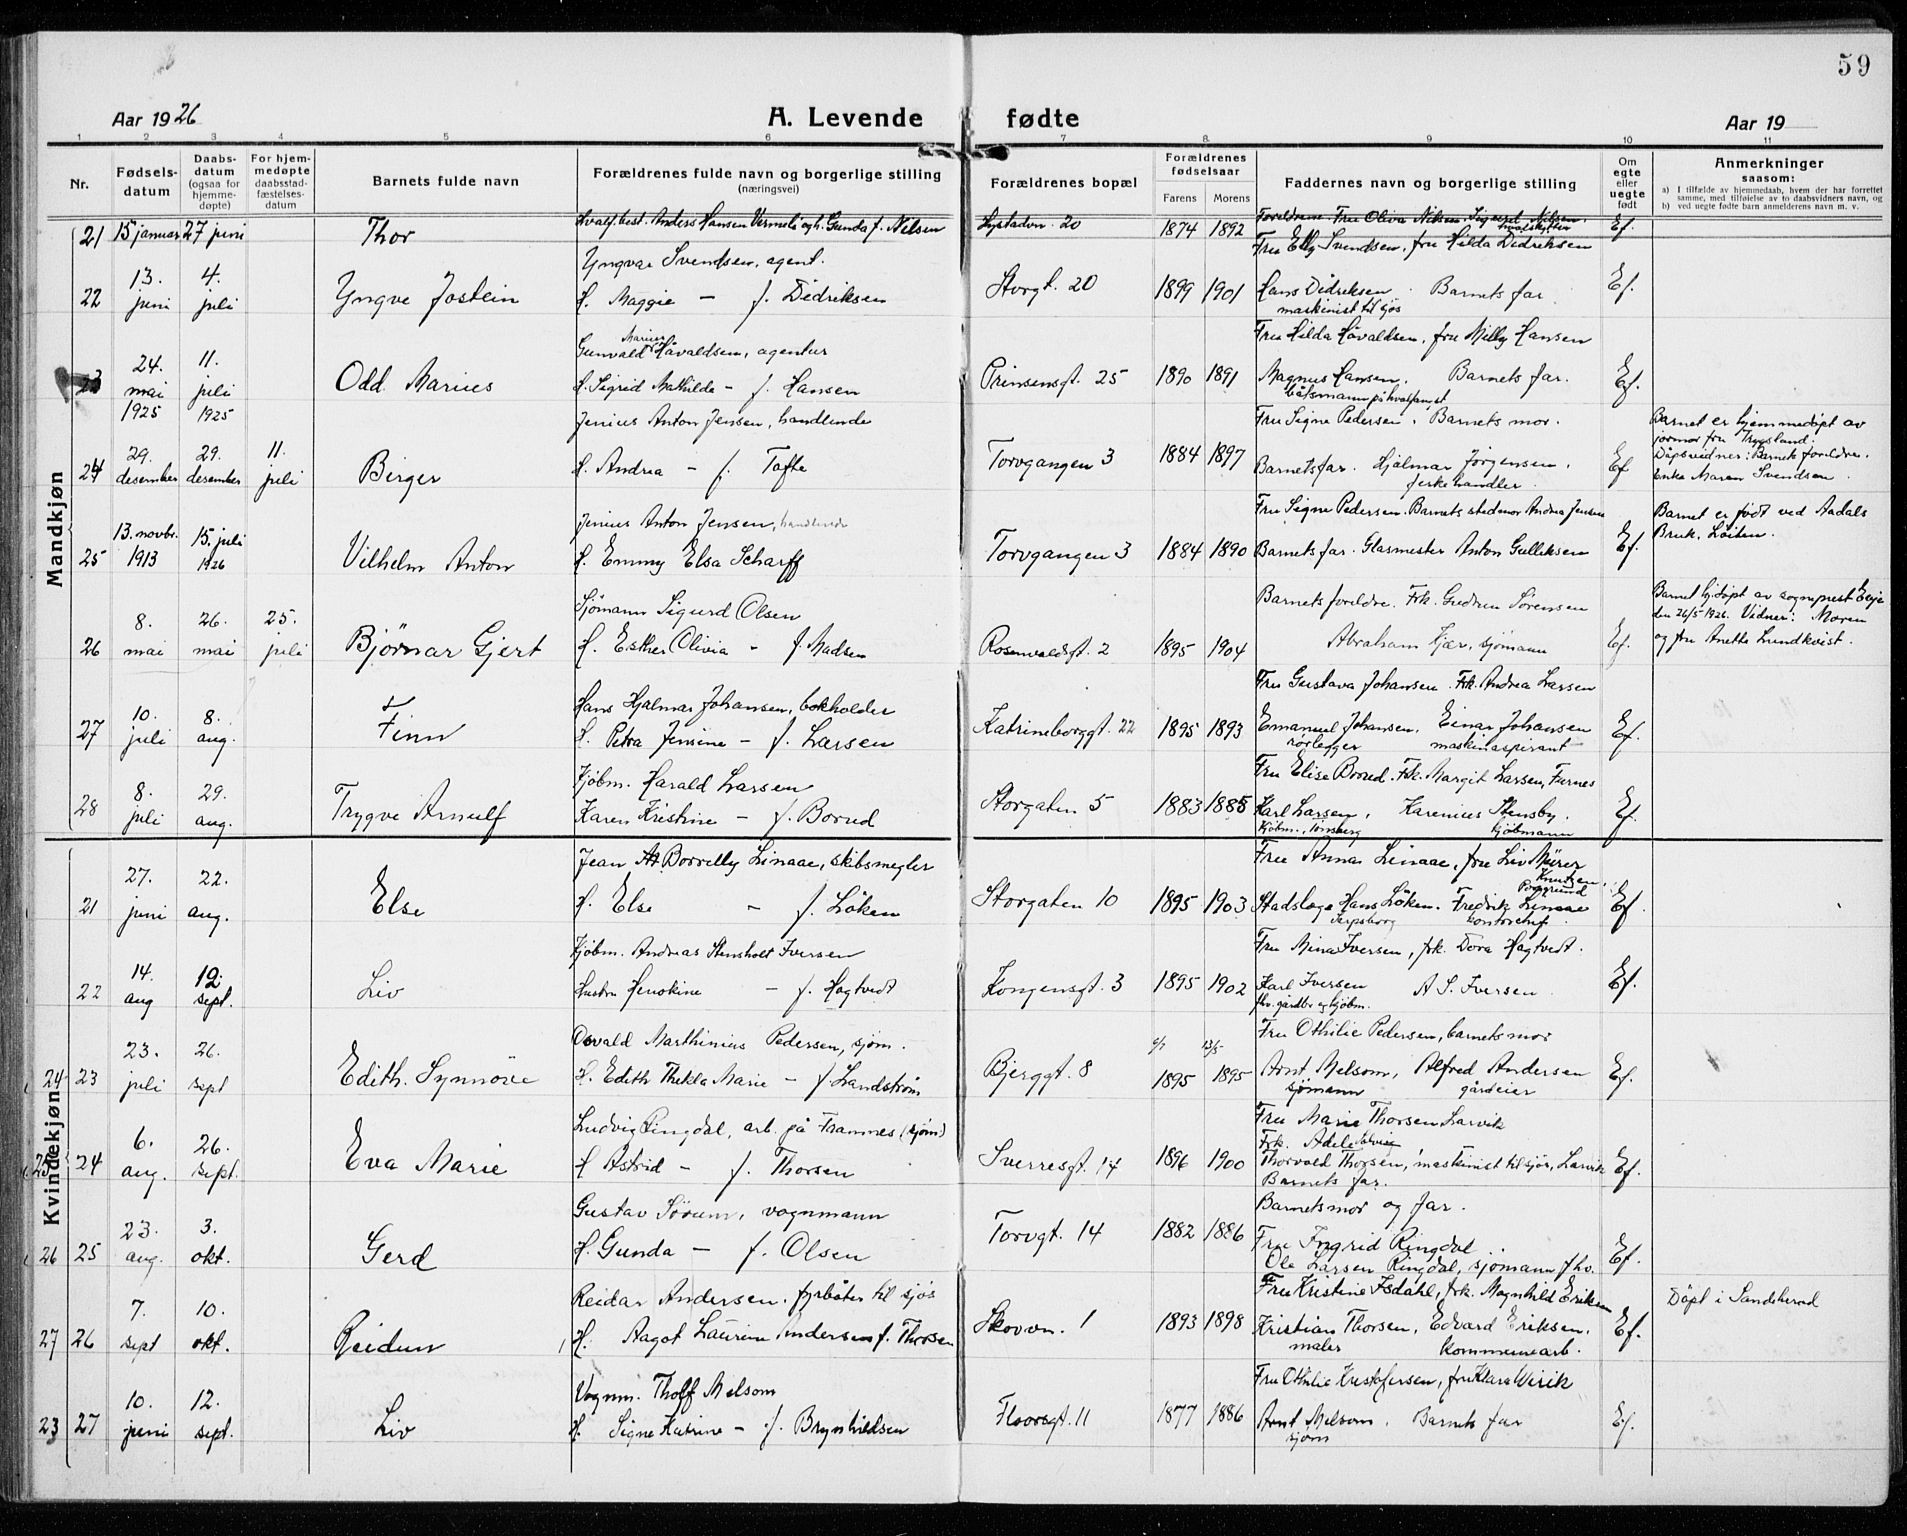 59
Aar 1926 A. Levende fødte Aar 19
1 2 3 4 5 6 7 8 9 10 11
Nr. Fødsels-datum Daabs-datum (ogsaa for hjemme-døpte) For hjem-medøpte daabsstad-fæstelses-datum Barnets fulde navn Forældrenes fulde navn og borgerlige stilling (næringsvei) Forældrenes bopæl Forældrenes fødselsaar Farens Morens Faddernes navn og borgerlige stilling Om egte eller uegte født Anmerkninger saasom:
a) I tilfælde av hjemmedaab, hvem der har forrettet samme, med tilføielse av to daabsvidners navn, og
b) ved uegte fødte barn anmelderens navn m. v.
Mandkjøn
21 15 januar 27 juni Thor Hvalf.best. Anders Hansen Vermeli og h. Gunda f. Nilsen Lystadvn. 20 1874 1892 Foreldrene Fru Oliva Nilsen. Sigurd Nilsen, hvalskytter Ef.
22 13. juni 4. juli Yngve Jostein Yngvar Svendsen, agent.
H. Maggie - f. Didriksen Storgt. 20 1899 1901 Fru Elly Svendsen, fru Hilda Didriksen
Hans Didriksen maskinist til sjøs Barnets far Ef.
23 24. mai 1925 11. juli 1925 Odd Marius Gunvald Marius Håvaldsen, agentur
H. Sigrid Mathilde - f. Hansen Prinsensgt. 25 1890 1891 Fru Hilda Håvaldsen, fru Milly Hansen
Magnus Hansen. båtsmann på hvalfangst Barnets far. Ef.
24 29. desember 29. desember 11. juli Birger Jenius Anton Jensen, handlende
H. Andrea - f. Tofte Torvgangen 3 1884 1897 Fru Signe Pedersen. Barnets mor.
Barnets far. Hjalmar Jørgensen. Ef Barnet er hjemmedøpt av jormor fru Trygsland.
Dåpsvidner: Barnets foreldre. Enke Maren Svendsen.
25 13. novbr. 1913 15. juli 1926 Vilhelm Anton Jenius Anton Jensen, handlende
H. Emmy Elsa Scharff Torvgangen 3 1884 1890 Fru Signe Pedersen. Barnets stedmor Andrea Jensen
Barnets far. Glasmester Anton Gulliksen Ef. Barnet er født ved Aadals Bruk, Løiten.
26 8. mai 26. mai 25. juli Bjørnar Gjert Sjømann Sigurd Olsen
H. Esther Olivia - f. Madsen Rosenvoldsgt. 2 1895 1904 Barnets foreldre. Frk. Gudrun Sørensen
Abraham Kjær, sjømann Ef. Barnet hj.døpt av sogneprest
den 26/5 1926. Vidner: Moren
og fru Anette Lundkvist.
27 10. juli 8. aug. Finn Hans Hjalmar Johansen, bokholder
H. Petra Jensine - f. Larsen Katrineborggt. 22 1895 1893 Fru Gustava Johansen. Frk. Andrea Larsen
Emanuel Johansen, rørlegger Einar Johansen maskinaspirant Ef.
28 8. juli 29. aug. Trygve Arnulf Kjøbm. Harald Larsen
Karen Kristine - f. Borud Storgaten 5 1883 1885 Fru Elise Borud. Frk. Margit Larsen, Furnes
Karl Larsen, Kjøbm., Tønsberg Karenius Stensby. kjøbmann Ef.
Kvindekjøn
21 27. juni 22. aug. Else Jean At. Borrelly Linaae, skibsmegler
H. Else - f. Løken Storgaten 10 1895 1903 Fru Anna Linaae, fru Liv Mürer Knutzen, Porsgrund
Stadslæge Hans Løken. Sarpsborg Fredrik Linaae kontorchef Ef.
22 14. aug 12. sept. Liv Kjøbm. Andreas Stensholt Iversen
Hustru Henokine - f. Hagtvedt Kongensgt. 3 1895 1902 Fru Mina Iversen, frk. Dora Hagtvedt.
Karl Iversen fhv. gårdbr. og kjøbm. A. S. Iversen Ef.
24 23 23. juli 26. sept Edith Synnøve Osvald Marthinius Pedersen, sjøm.
H. Edith Thekla Marie - f. Landstrøm Bjerggt. 8 1895 13/5 1895 Fru Othilie Pedersen, barnets mor
Arnt Melsom, sjømann Alfred Andersen gårdeier Ef.
25 24 6. aug. 26. sept. Eva Marie Ludvig Ringdal, arb. på Framnes (sjøm)
H Astrid - f. Thorsen Sverresgt. 14 1896 1900 Fru Marie Thorsen Larvik
Frk. Adele
Thorvald Thorsen, maskinist til sjøs, Larvik
Barnets far. Ef.
26 25 23. aug. 3. okt. Gerd Gustav Sørum, vognmann
H. Gunda - f. Olsen Torvgt. 14 1882 1886 Barnets mor og far.
Fru Ingrid Ringdal
Ole Larsen Ringdal, sjømann fhv. Ef.
27 26 7. sept 10. okt. Reidun Reidar Andersen. fyrbøter til sjøs
H. Aagot Laurine Andersen f. Thorsen Skovvn. 1 1893 1898 Fru Kristine Isdahl, frk. Magnhild Eriksen
Kristian Thorsen, maler Edvard Eriksen, kommunearb. Ef. Døpt i Sandeherad
23 27 10. juni 12. sept. Liv Vognm. Tholf Melsom
H. Signe Katrine - f. Brynhildsen Floorsgt. 11 1877 1886 Fru Othilie Kristofersen, fru Klara Virik
Arnt Melsom. sjøm Barnets far Ef.